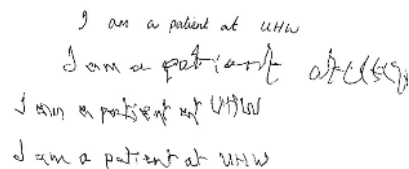 I am a patient at UHW
I am a patient at
I am a patient at UHW
I am a patient at UHW